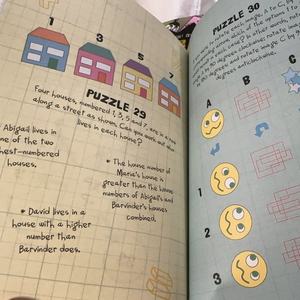 1
3
5
7
PUZZLE 29
Four houses, numbered 1, 3, 5 and 7, are in a row
along a street as shown. Can you work out who
lives in each house?
Abigail lives in
one of the two
numbered
houses.
* The house number of
Marie's house is
greater than the house
numbers of Abigail's and
Barvinder's houses
combined.
* David lives in a
house with a higher
number than
Barvinder does.
PUZZLE 30
rotate each image, A to C, by
of the options 1 to
in each case? In other words, rotate
by 90 degrees clockwise; rotate image
degrees, and rotate image C by 90
degrees anticlockwise.
A
B
C
1
2
3